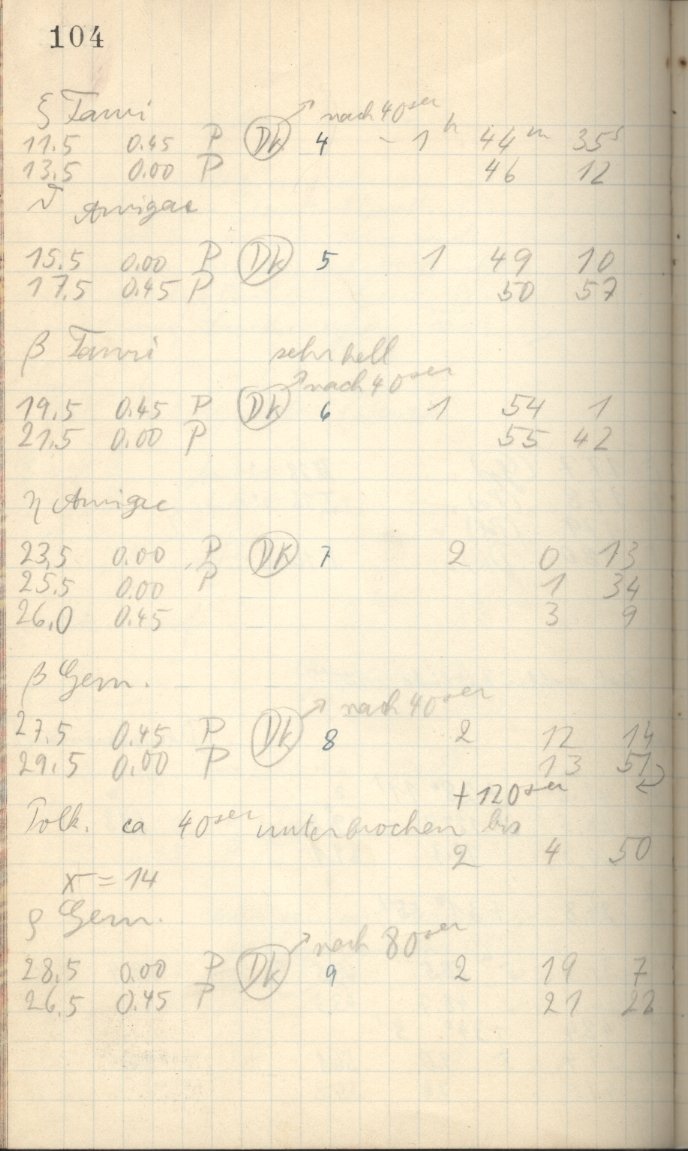 104
ξ Tauri
nach 40 sec
11.5 0.45 P Dk 4 - 1h 44m 35s
13.5 0.00 P 46 12
Aurigae
15.5 0.00 P Dk 5 1 49 10
17.5 0.45 P 50 57
β Tauri sehr hell
nach 40 sec
19.5 0.45 P Dk 6 1 54 1
21.5 0.00 P 55 42
η Aurigae
23.5 0.00 P Dk 7 2 0 13
25.5 0.00 P 1 34
26.0 0.45 3 9
β Gem.
nach 40 sec
27.5 0.45 P Dk 8 2 12 14
29.5 0.00 P 13 51
+ 120 sec
ca 40 sec unterbrochen bis
2 4 50
x = 14
ρ Gem.
nach 80 sec
28.5 0.00 P Dk 9 2 19 7
26.5 0.45 P 21 22